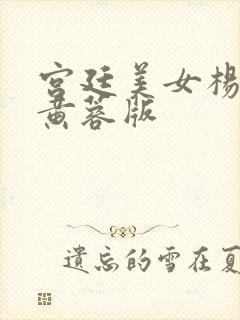 宫廷美女杨
黄蓉版
遺忘的雪在夏